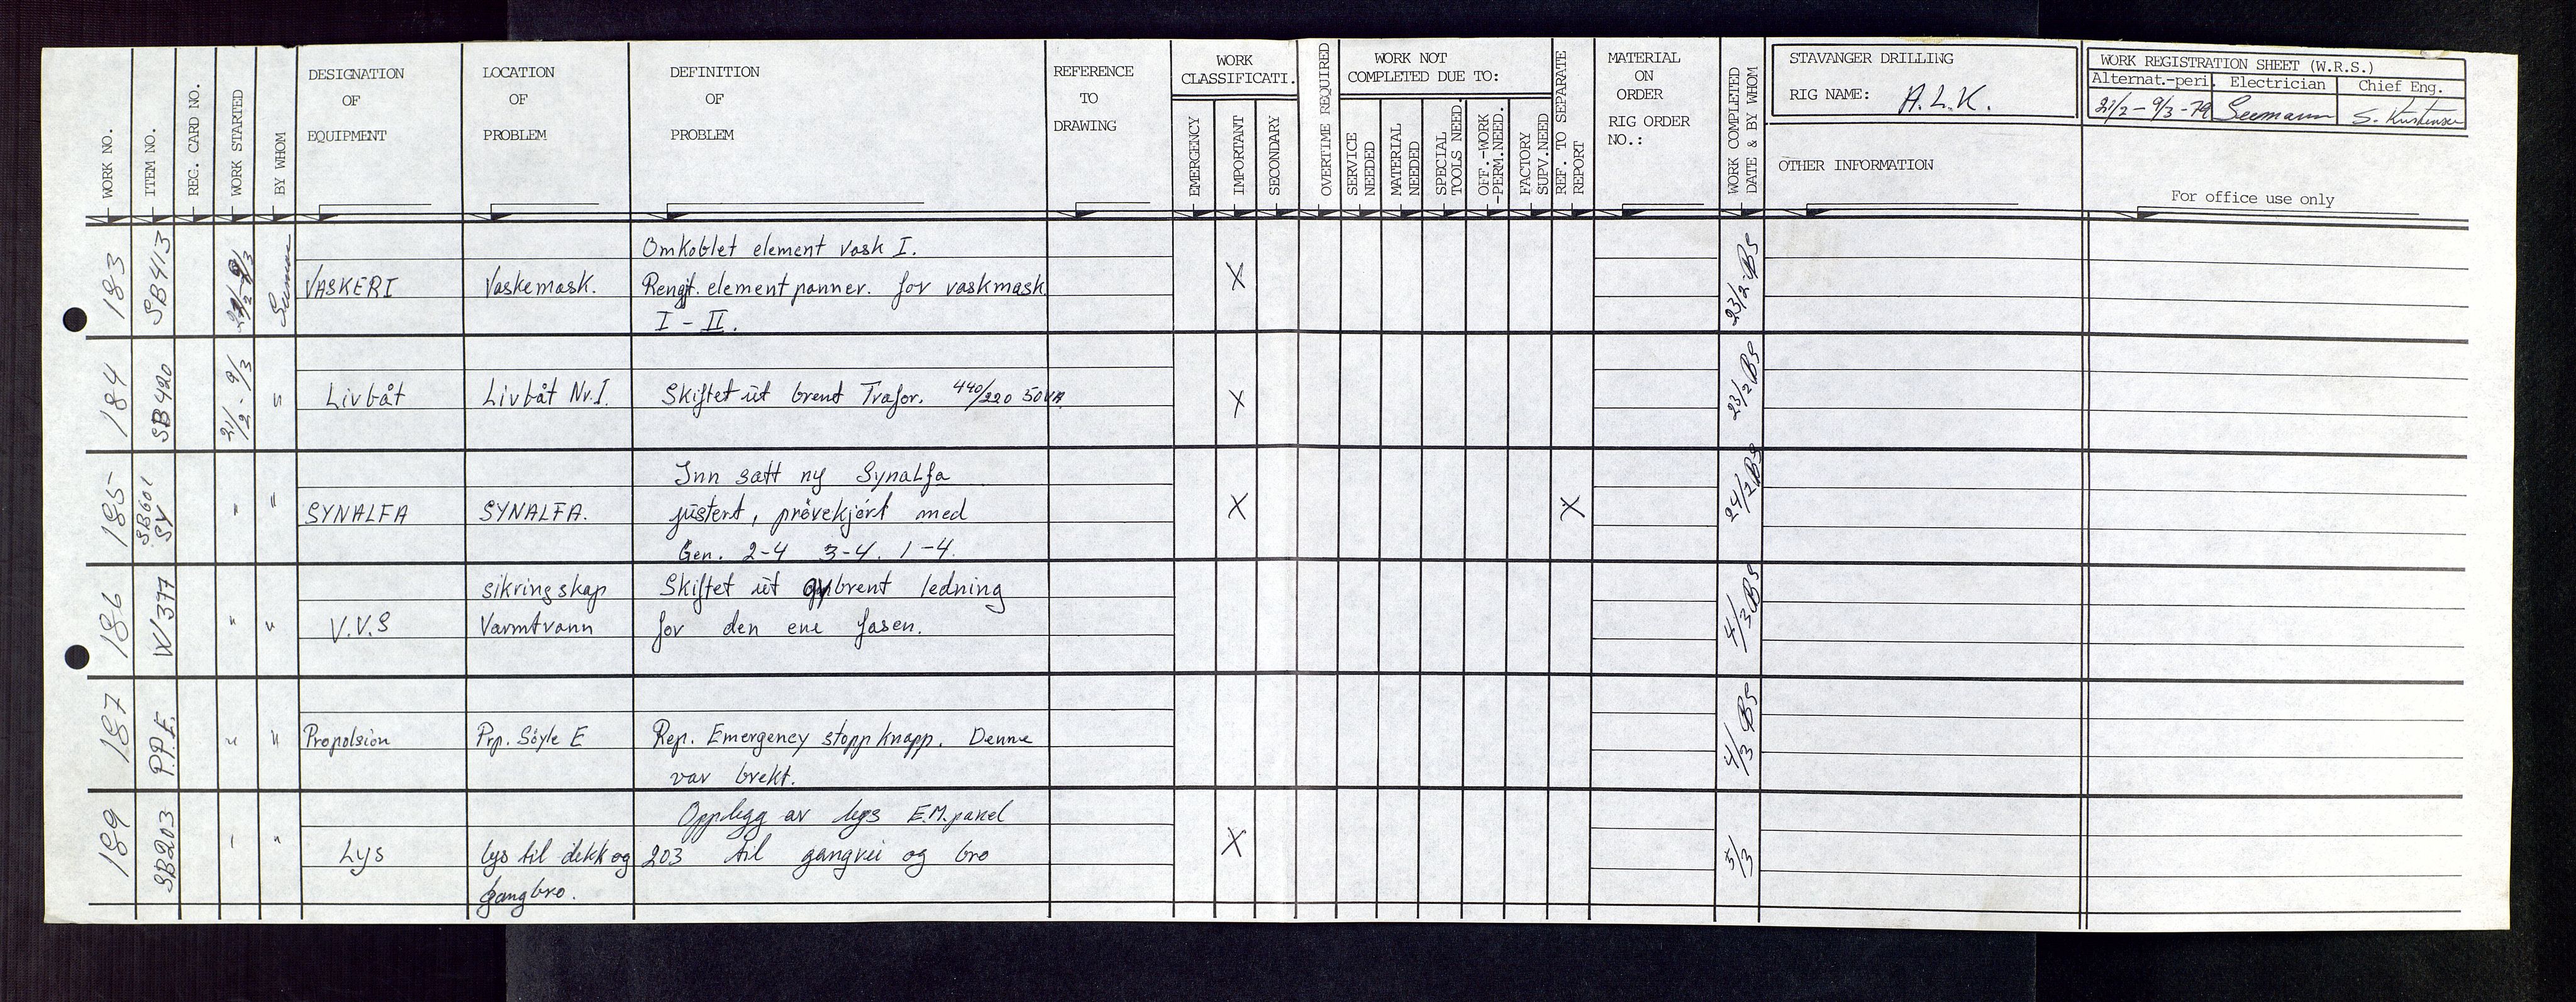 WORK NO.
ITEM NO.
REG. CARD NO.
WORK STARTED
BY WHOM
DESIGNATION
OF
EQUIPMENT
LOCATION
OF
PROBLEM
DEFINITION
OF
PROBLEM
REFERENCE
TO
DRAWING
WORK
CLASSIFICATI.
EMERGENCY
IMPORTANT
SECONDARY
OVERTIME REQUIRED
WORK NOT
COMPLETED DUE TO:
SERVICE
NEEDED
MATERIAL
NEEDED
SPECIAL
TOOLS NEED.
OFF.-WORK
-PERM.NEED.
FACTORY
SUPV.NEED
REF. TO SEPARATE
REPORT
MATERIAL
ON
ORDER
RIG ORDER
NO.:
WORK COMPLETED
DATE & BY WHOM
STAVANGER DRILLING
RIG NAME: A.L.K.
OTHER INFORMATION
WORK REGISTRATION SHEET (W.R.S.)
Alternat.-peri. Electrician Chief Eng.
21/2 - 9/3 -79 Seemann S. Kristensen
For office use only
183
SB413
21/2 - 9/3
Seemann
VASKERI
Vaskemask.
Omkoblet element vask I.
Rengt. element panner. for vaskmask
I - II.
X
23/2 BS
184
SB420
21/2 - 9/3
"
Livbåt
Livbåt Nr. I.
Skiftet ut brent Trafor. 440/220 50VA
X
23/2 BS
185
SB601
SY
"
"
SYNALFA
SYNALFA.
Inn satt ny Synalfa
justert, prövekjört med
Gen. 2-4 3-4. 1-4.
X
X
24/2 BS
186
W 377
"
"
V.V.S
sikringskap
Varmtvann
Skiftet ut brent ledning
for den ene fasen.
4/3 BS
187
P.P.E.
"
"
Propolsion
Prp. Söyle E
Rep. Emergency stopp knapp. Denne
var brekt.
4/3 BS
189
SB203
"
"
Lys
lys til dekk og
gangbro.
Opplegg av lys E.M.panel
203 til gangvei og bro
X
5/3